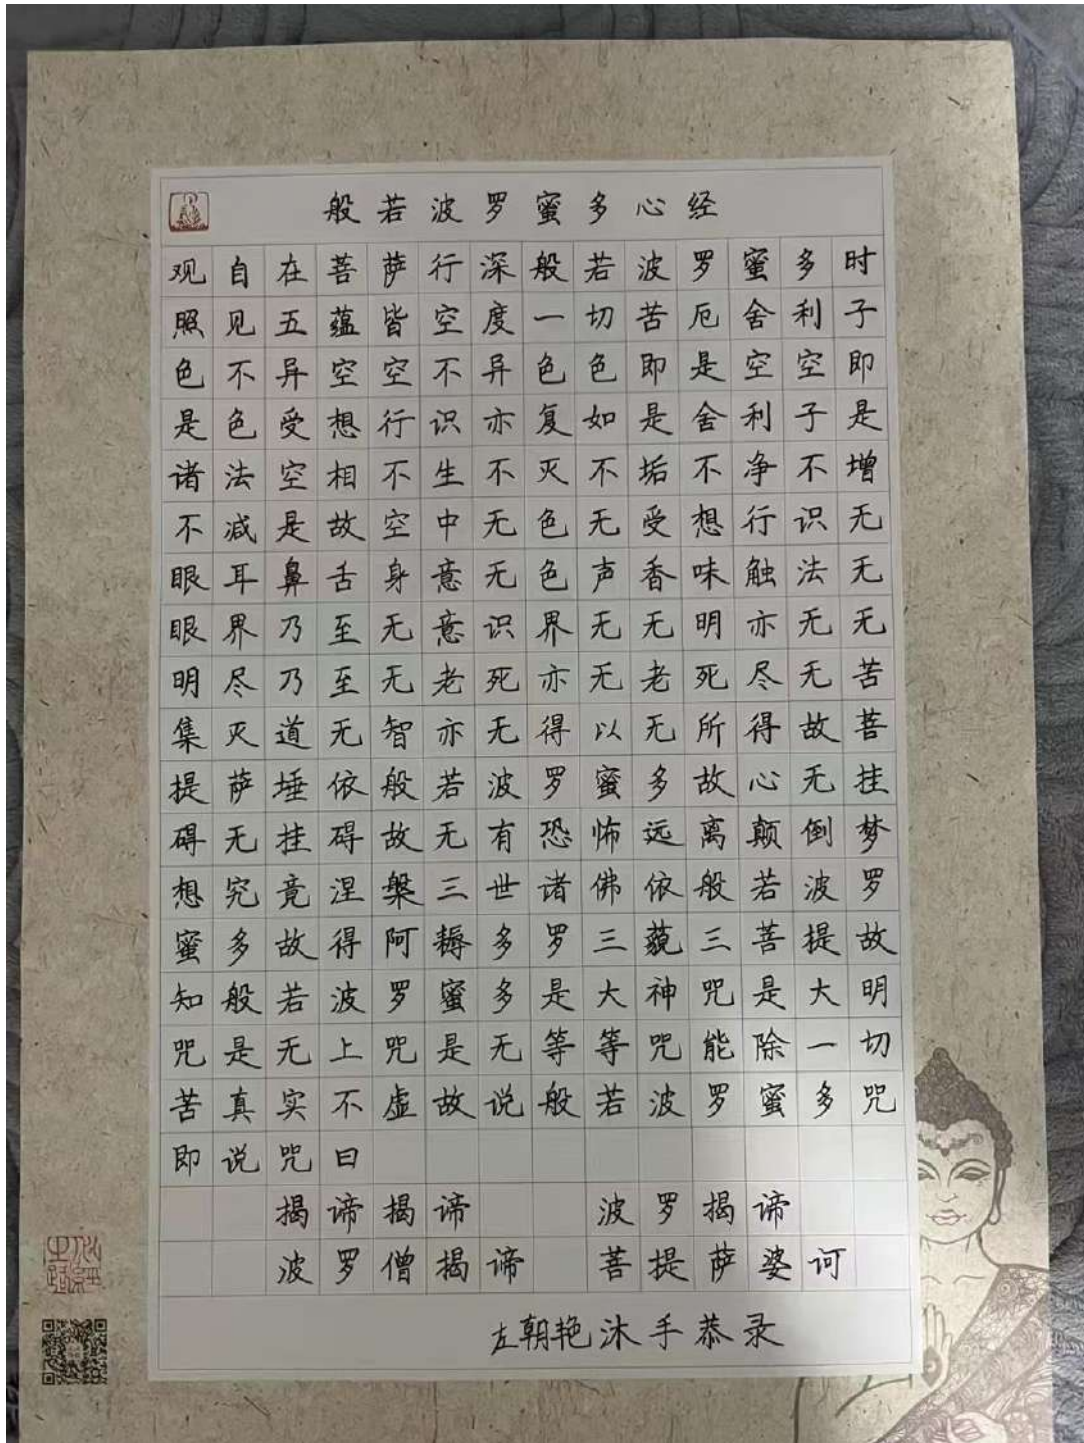 般若波罗蜜多心经
观自在菩萨行深般若波罗蜜多时
照见五蕴皆空度一切苦厄舍利子
色不异空空不异色色即是空空即
是色受想行识亦复如是舍利子是
诸法空相不生不灭不垢不净不增
不减是故空中无色无受想行识无
眼耳鼻舌身意无色声香味触法无
眼界乃至无意识界无无明亦无无
明尽乃至无老死亦无老死尽无苦
集灭道无智亦无得以无所得故菩
提萨埵依般若波罗蜜多故心无挂
碍无挂碍故无有恐怖远离颠倒梦
想究竟涅槃三世诸佛依般若波罗
蜜多故得阿耨多罗三藐三菩提故
知般若波罗蜜多是大神咒是大明
咒是无上咒是无等等咒能除一切
苦真实不虚故说般若波罗蜜多咒
即说咒曰
揭谛揭谛 波罗揭谛
波罗僧揭谛 菩提萨婆诃
左朝艳沐手恭录